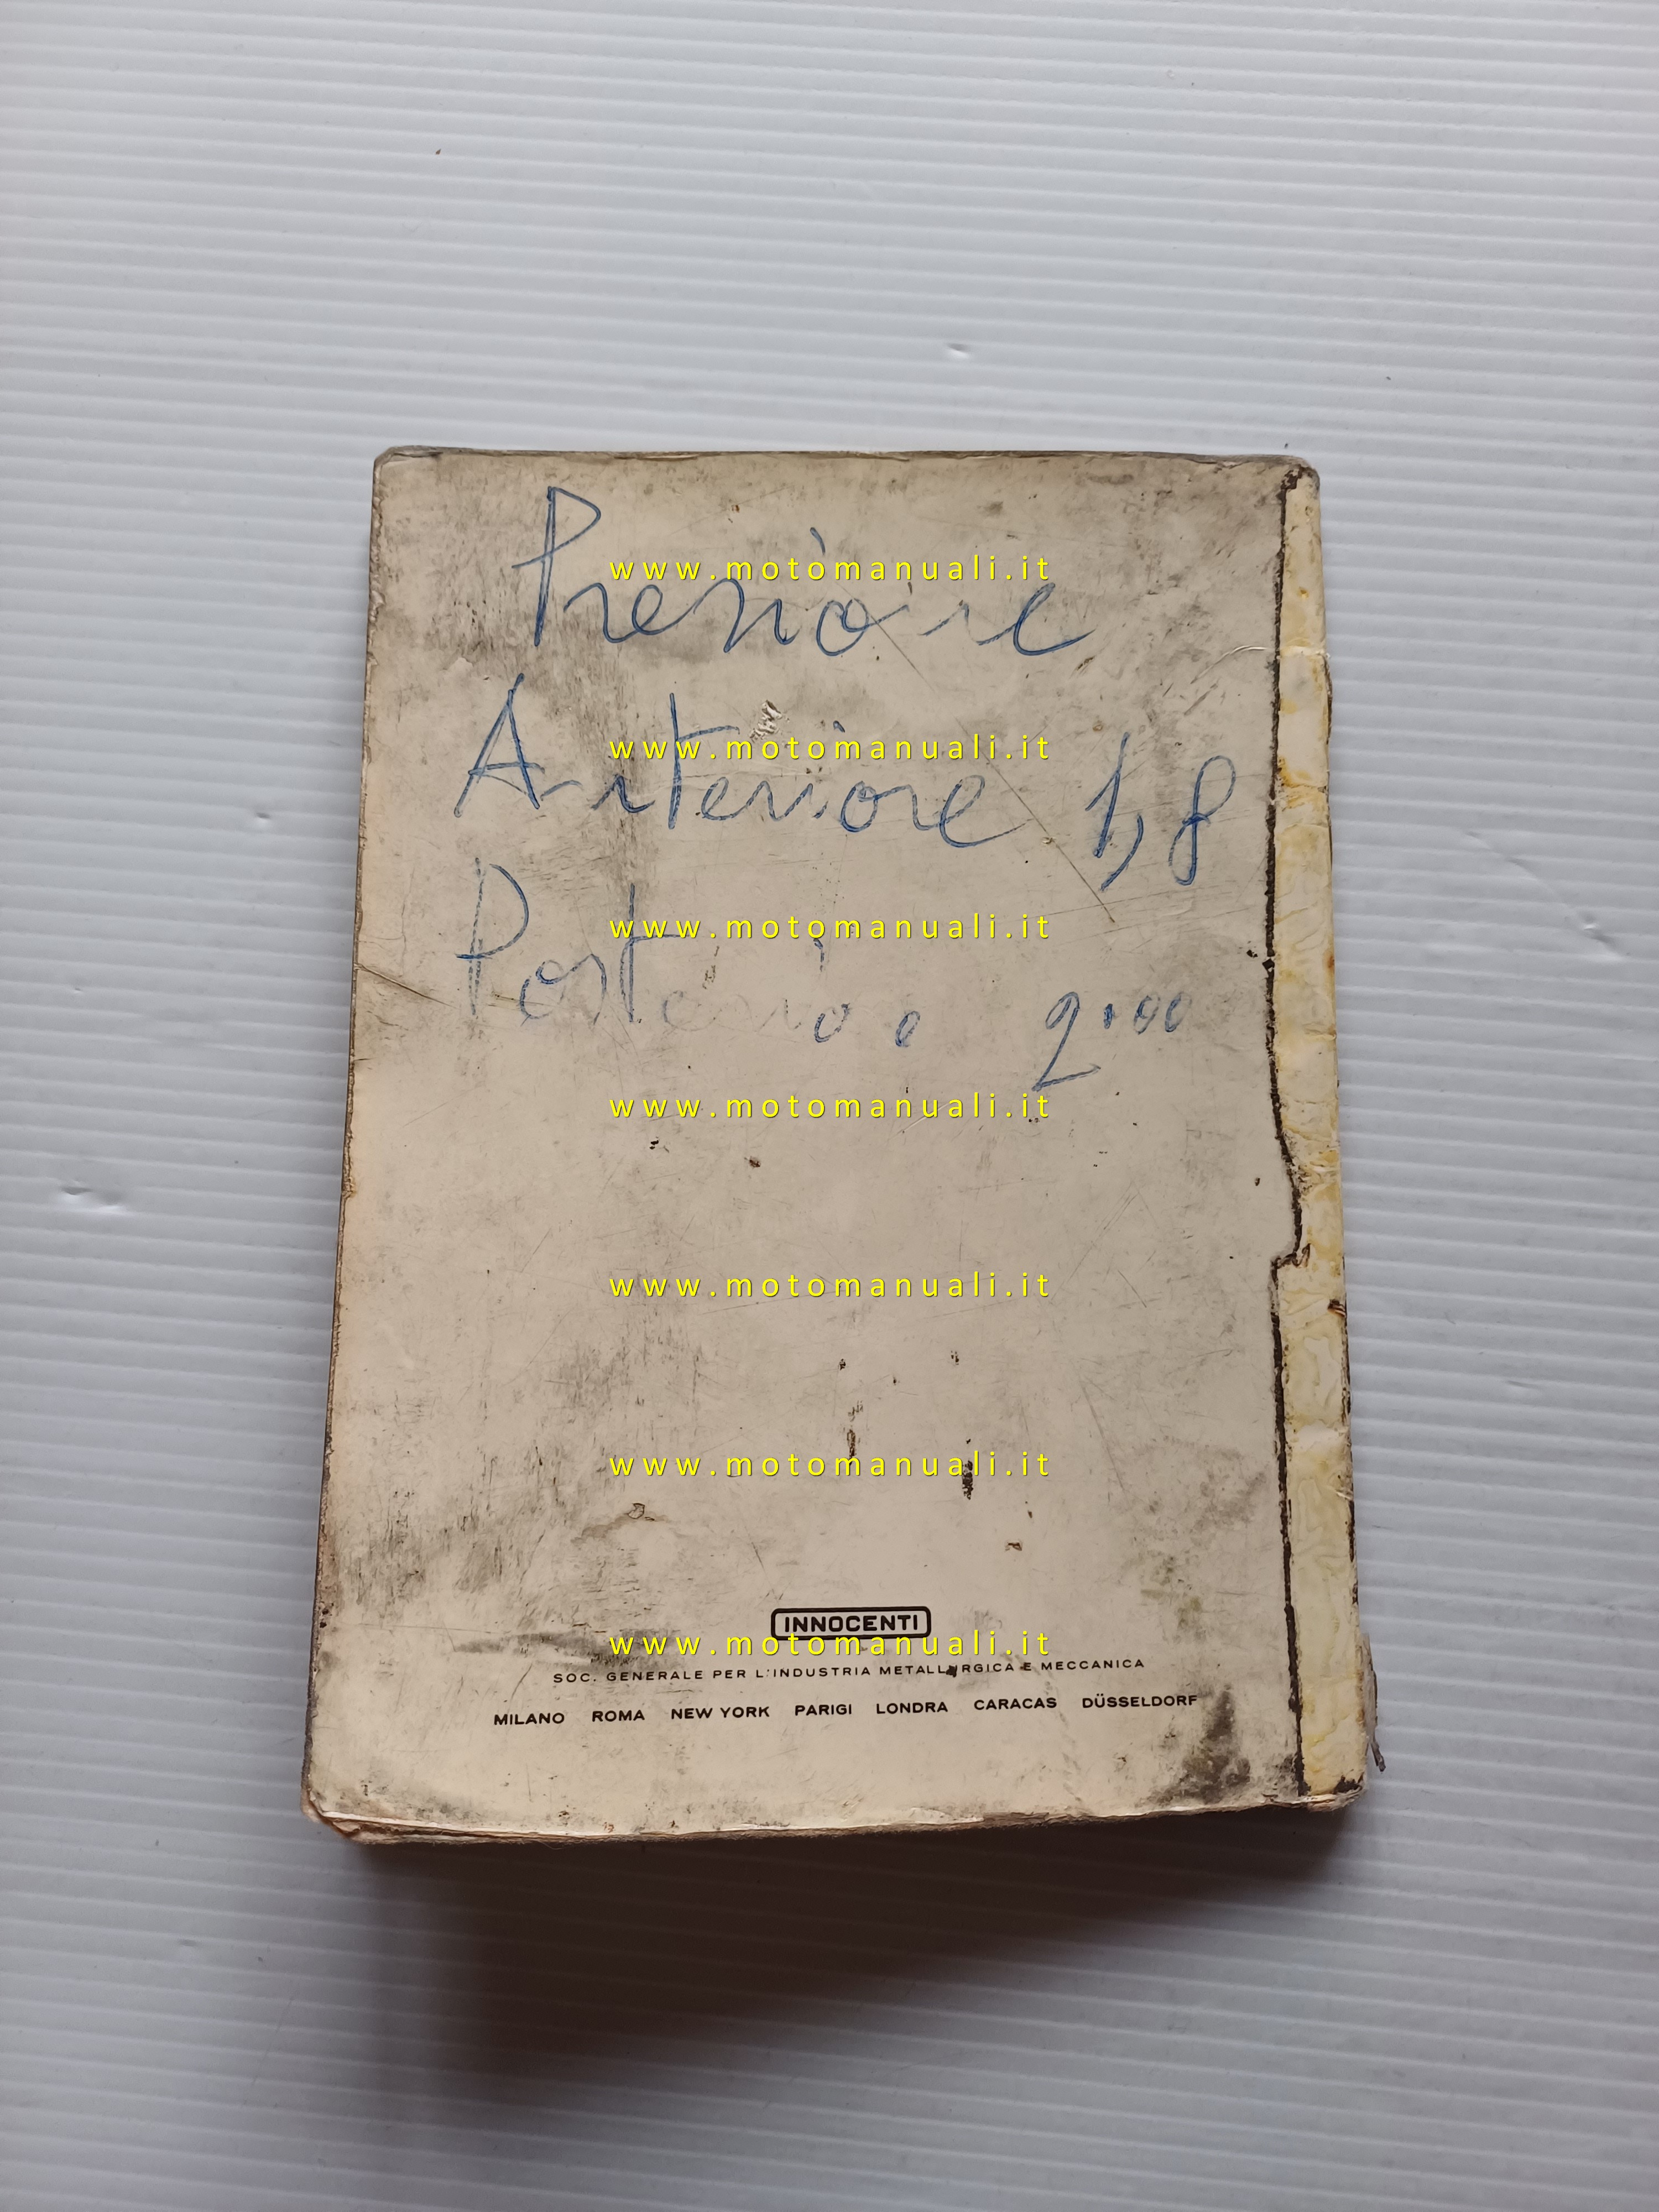 Pressione
www.motomanuali.it
Anteriore 1,8
www.motomanuali.it
Posteriore 2.00
www.motomanuali.it
www.motomanuali.it
www.motomanuali.it
www.motomanuali.it
INNOCENTI
www.motomanuali.it
SOC. GENERALE PER L'INDUSTRIA METALLURGICA E MECCANICA
MILANO ROMA NEW YORK PARIGI LONDRA CARACAS DÜSSELDORF